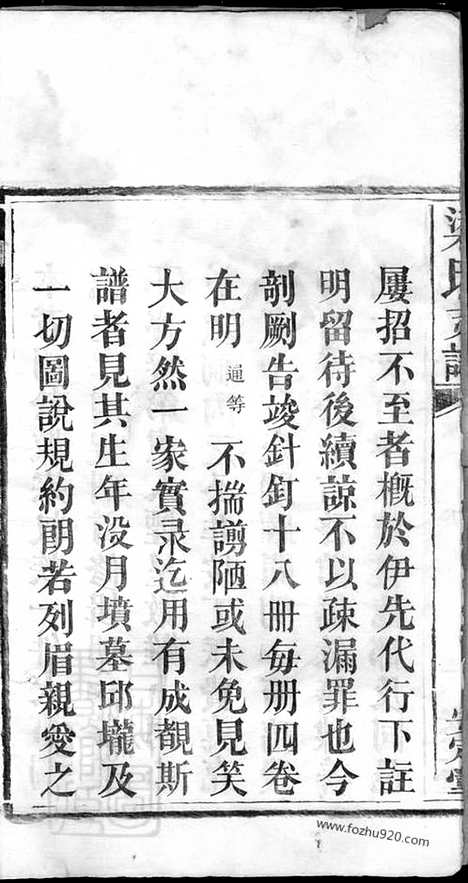 屢招不至者概於伊先代行下註
明留待後續諒不以疎漏罪也今
剞劂告竣針釘十八冊每册四卷
在明 逼等 不揣謭陋或未免見笑
大方然一家實录迄用有成覩斯
譜者見其生年没月墳墓邱壠及
一切圖說規約朗若列眉親愛之
www.fozhu920.com